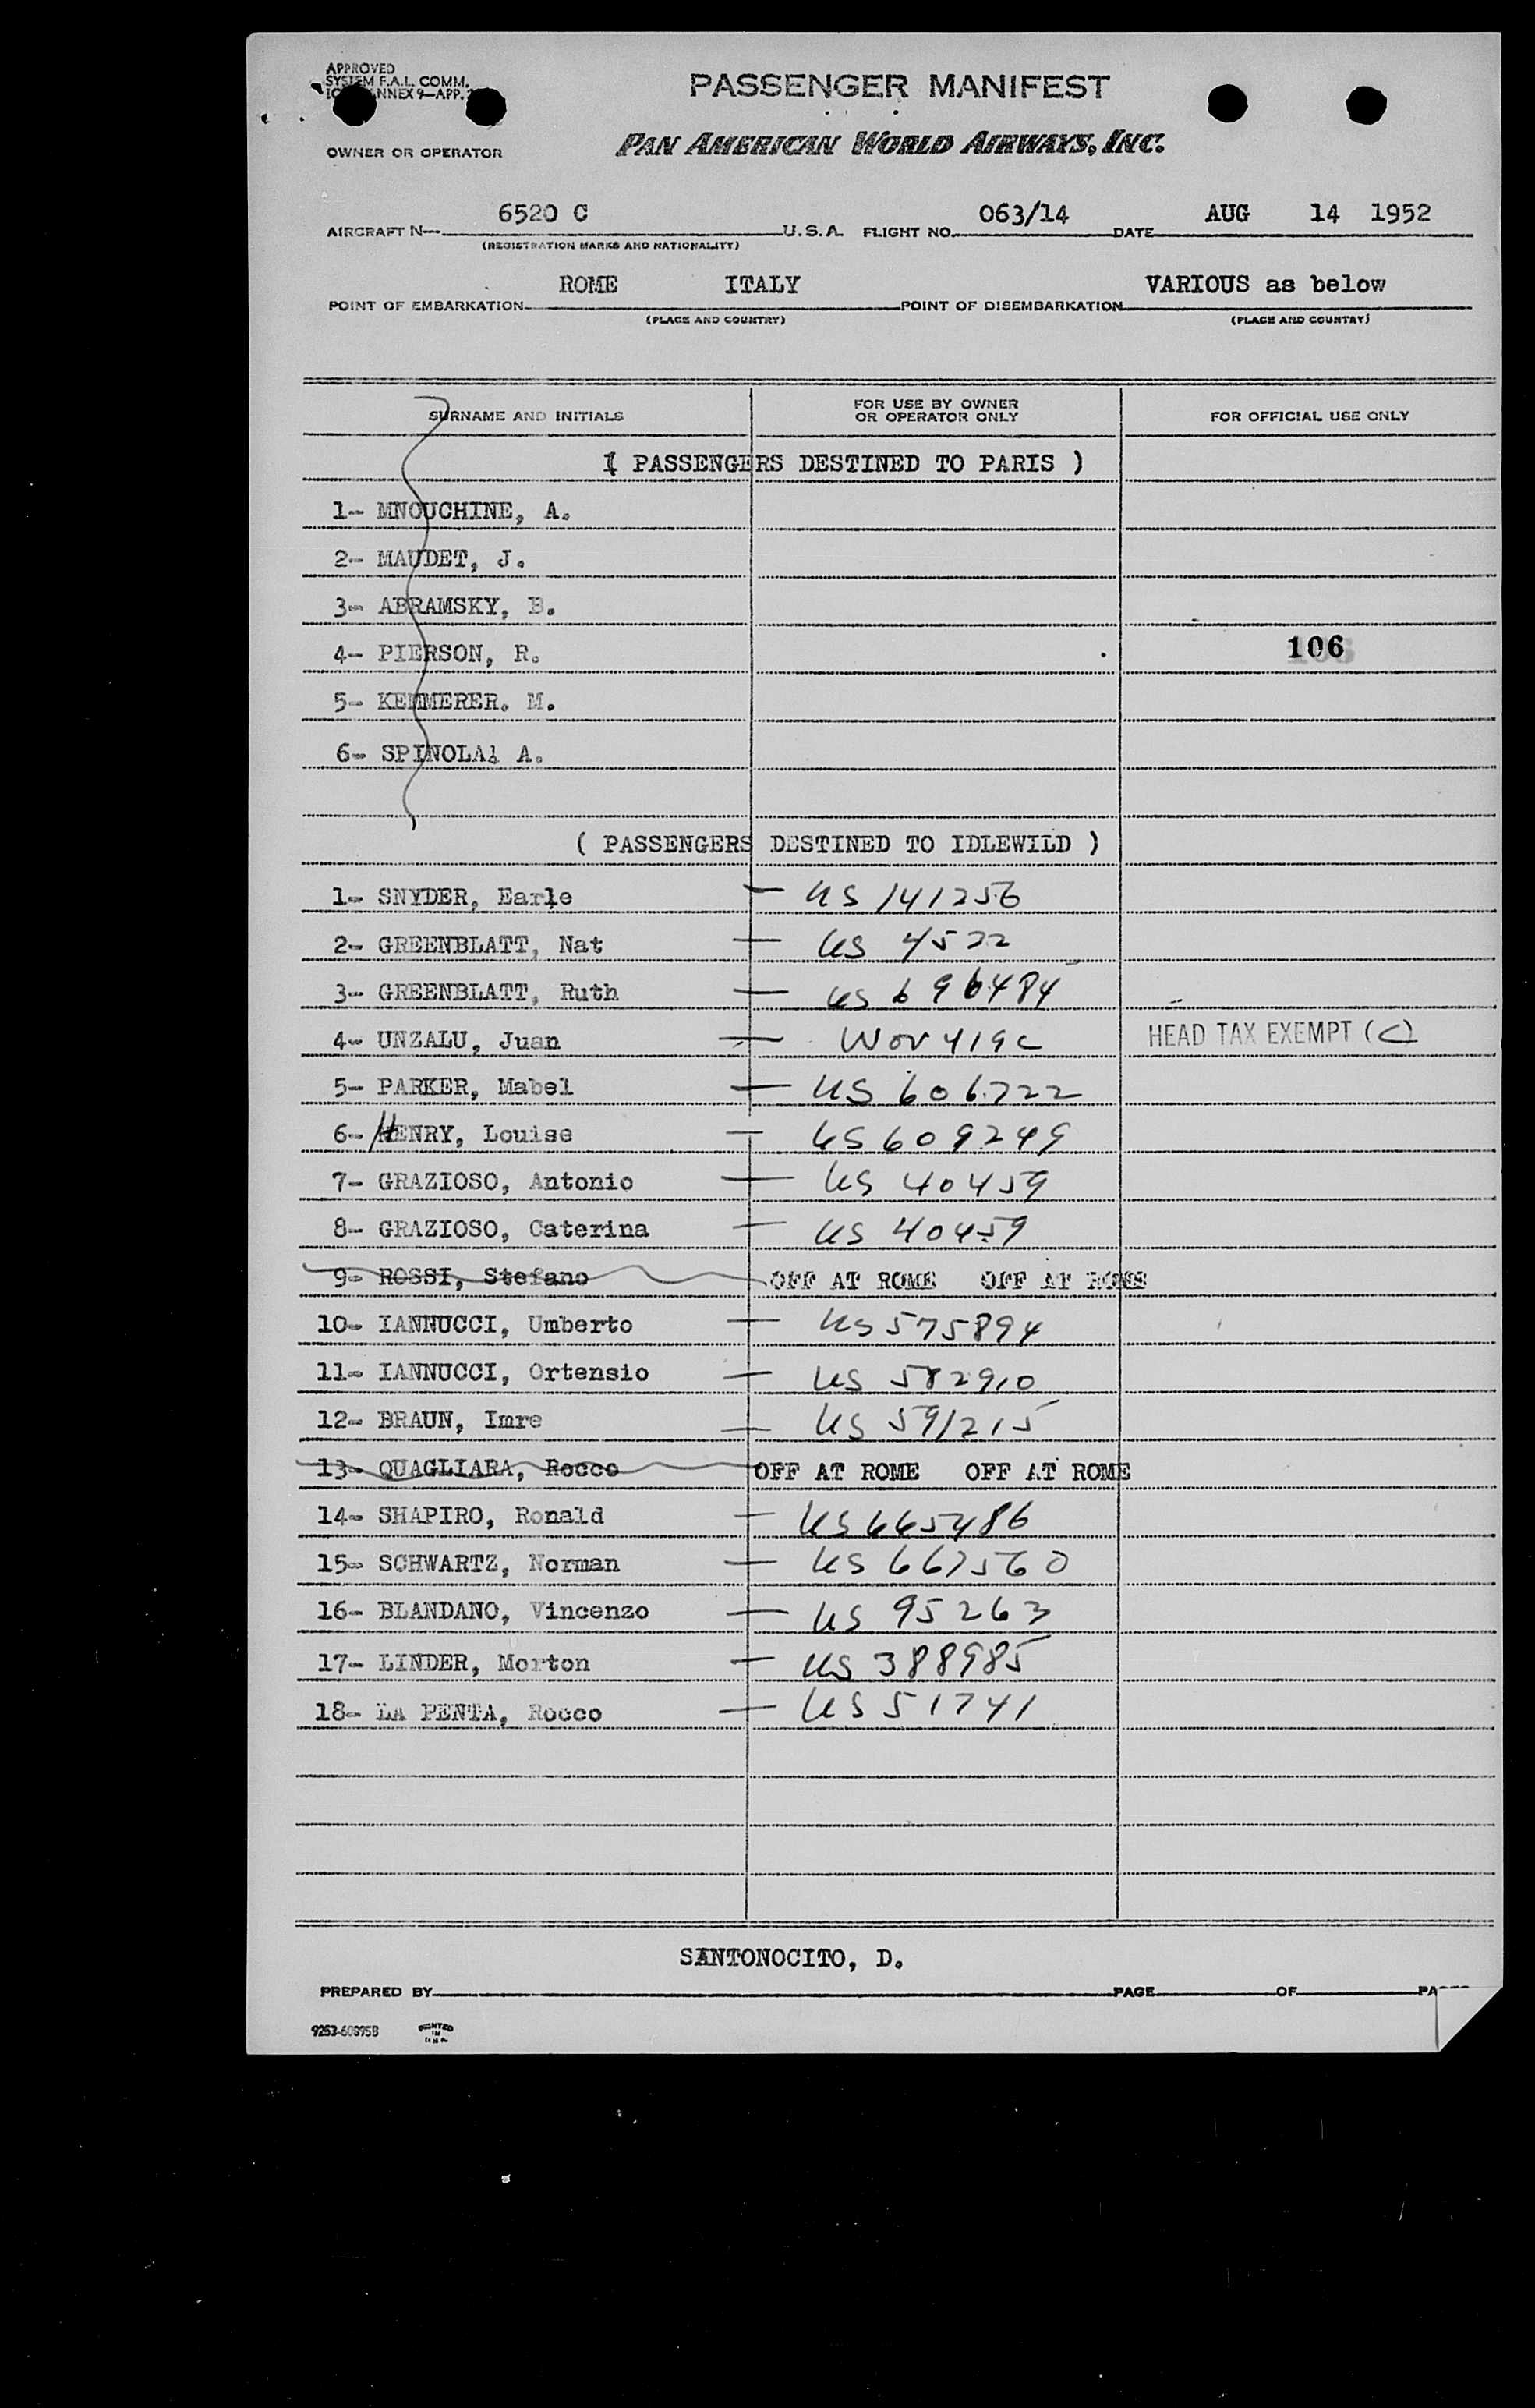 APPROVED
SYSTEM F.A.L. COMM.
ANNEX 9—APP.
PASSENGER MANIFEST
OWNER OR OPERATOR
PAN AMERICAN WORLD AIRWAYS, INC.
AIRCRAFT N— 6520 C U.S.A. FLIGHT NO. 063/14 DATE AUG 14 1952
(REGISTRATION MARKS AND NATIONALITY)
POINT OF EMBARKATION ROME ITALY POINT OF DISEMBARKATION VARIOUS as below
(PLACE AND COUNTRY) (PLACE AND COUNTRY)
SURNAME AND INITIALS FOR USE BY OWNER OR OPERATOR ONLY FOR OFFICIAL USE ONLY
( PASSENGERS DESTINED TO PARIS )
1- MNOUCHINE, A.
2- MAUDET, J.
3- ABRAMSKY, B.
4- PIERSON, R. 106
5- KEMMERER. M.
6- SPINOLA, A.
( PASSENGERS DESTINED TO IDLEWILD )
1- SNYDER, Earle — US 141256
2- GREENBLATT, Nat — US 4522
3- GREENBLATT, Ruth — US 696484
4- UNZALU, Juan — HEAD TAX EXEMPT (C)
5- PARKER, Mabel — US 606722
6- HENRY, Louise — US 609249
7- GRAZIOSO, Antonio — US 40459
8- GRAZIOSO, Caterina — US 40459
9- ROSSI, Stefano OFF AT ROME OFF AT ROME
10- IANNUCCI, Umberto — US 575894
11- IANNUCCI, Ortensio — US 582910
12- BRAUN, Imre — US 591215
13- QUAGLIARA, Rocco OFF AT ROME OFF AT ROME
14- SHAPIRO, Ronald — US 665486
15- SCHWARTZ, Norman — US 667560
16- BLANDANO, Vincenzo — US 95263
17- LINDER, Morton — US 388985
18- LA PENTA, Rocco — US 51741
SANTONOCITO, D.
PREPARED BY PAGE OF
9253-60895B PRINTED IN U.S.A.